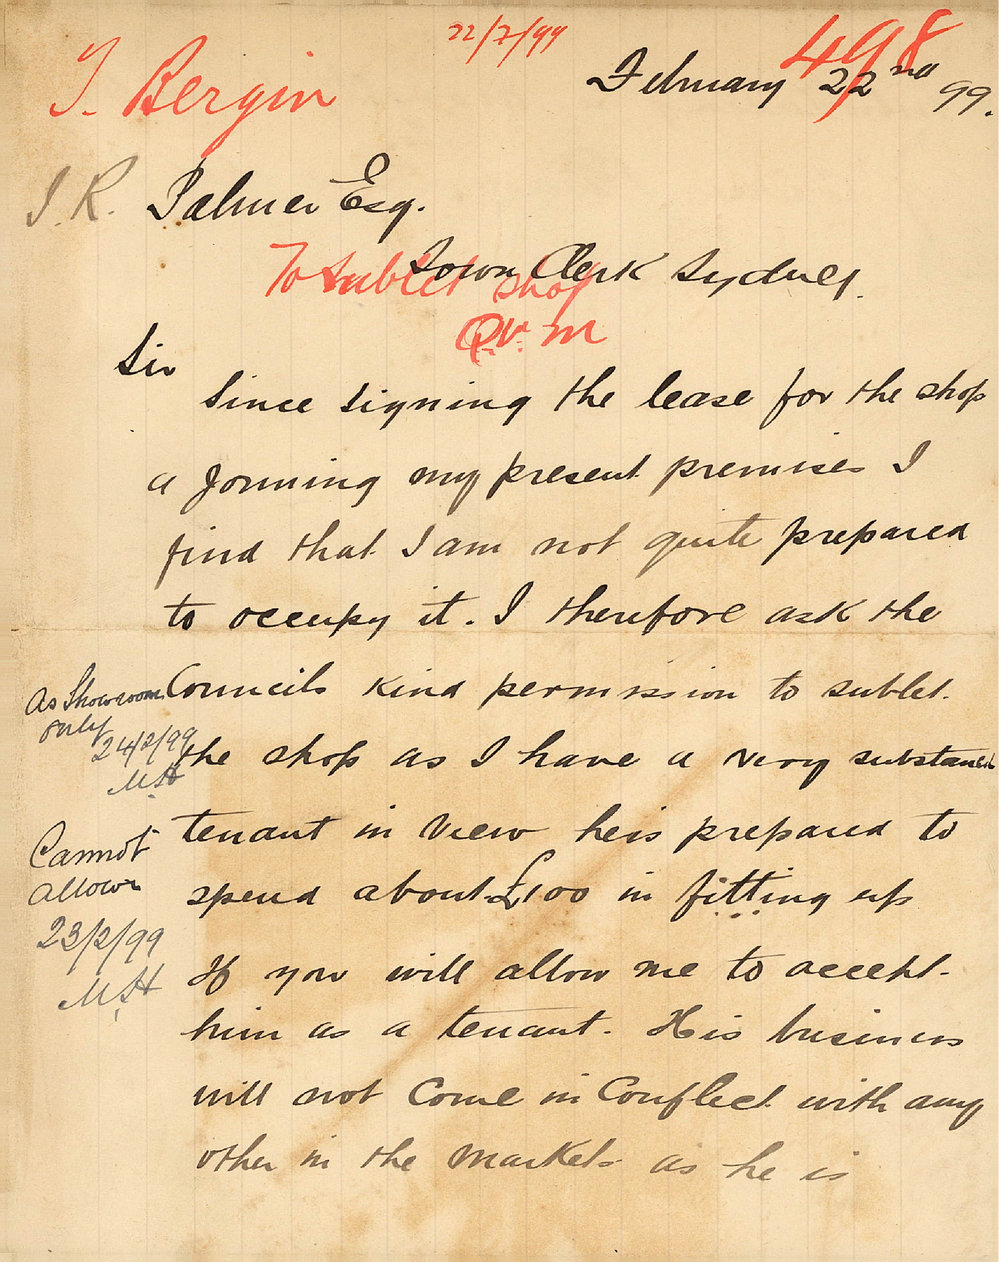 22/7/99
498
T. Bergin
February 22nd 99.
J. R. Palmer Esq.
Town Clerk Sydney.
To sublet shop
Q.V. M
Sir
Since signing the lease for the shop
a Jorning my present premises I
find that I am not quite prepared
to occupy it. I therefore ask the
Councils kind permission to sublet.
the shop as I have a very substancel
tenant in view heis prepared to
spend about £100 in fitting up
If you will allow me to accept.
him as a tenant. His business
will not Come in Conflect with any
other in the Markets as he is
As Showroom
only
24/2/99
M.H
Cannot
allow
23/2/99
M.H